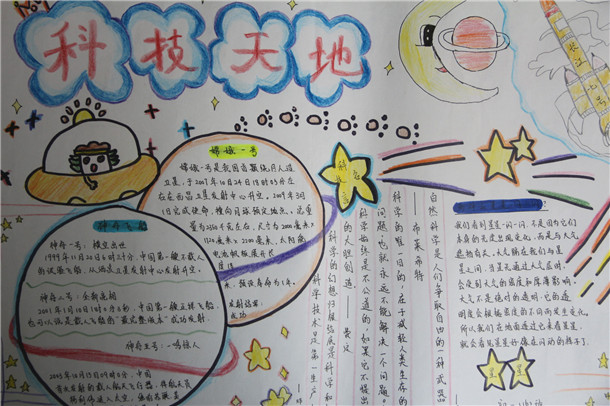 科技天地
长江七号
嫦娥一号
嫦娥一号是我国首颗绕月人造
卫星，于2007年10月24日18时05分左
右在西昌卫星发射中心升空。2009年3月
1日完成使命，撞向月球预定地点。总重
量为2350千克左右，尺寸为2000毫米×
1720毫米×2200毫米，太阳能
电池帆板展开长
寿命为1年。
成功
神舟飞船
神舟一号：横空出世
1999年11月20日6时30分，中国第一艘无载人
的试验飞船，从酒泉卫星发射中心发射升空。
神舟二号：全新亮相
2001年1月10日1时0分3秒，中国第一艘正样飞船，
也可以说是载人飞船的“最完整版本”成功发射。
神舟五号：一鸣惊人
2003年10月15日09时0分，中国
科技名言
自然科学是人们争取自由的一种武器
——布莱希特
科学的唯一目的，在于减轻人类生存的
科学始终是不公道的，如果它不提出
问题，也就永远不能解决一个问题。
的大胆创造——爱迪
科学的幻想归根结底是科学和
科学技术是第一生产
我们看到星星一闪一闪，不是因为它们
本身的光度出现变化，而是与大气
遮挡有关。大气隔在我们与星
星之间，当星光通过大气层时，
会受到大气的密度和厚薄影响。
大气不是绝对的透明，它的透
明度会根据密度的不同而发生变化。
所以我们在地面透过它来看星星，
就会看见星星好像在闪的样子了。
星星